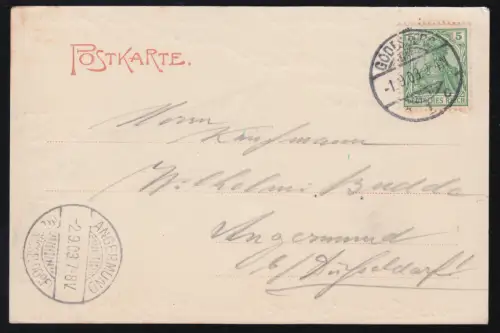 POSTKARTE.
5
DEUTSCHES REICH
GODESBERG
-1.9.03
c
Herrn
Kaufmann
Wilhelm Budde
Angermund
b/Düsseldorf!
ANGERMUND
-2.9.03.7-8V.